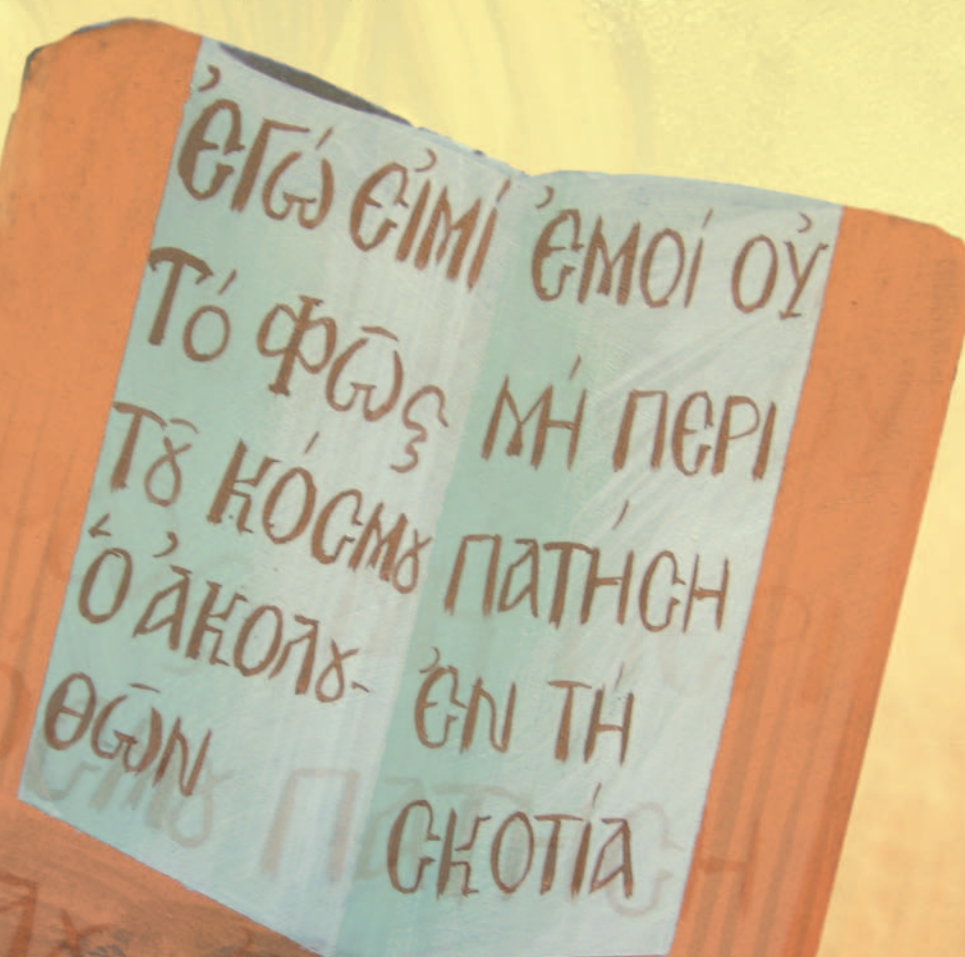 ἐγώ εἰμί
Τό φῶς
Τȣ͂ κόσμȣ
ὁ ἀκολȣ-
θῶν
ἐμοί οὐ
μή περι
πατήσῃ
ἐν τή
σκοτία